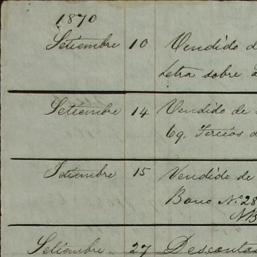 1870
Setiembre 10 Vendido d
Letra sobre
Setiembre 14 Vendido de
69. Tercios d
Setiembre 15 Vendido de
Bono Nº 28
NB
Setiembre 27 Descontas